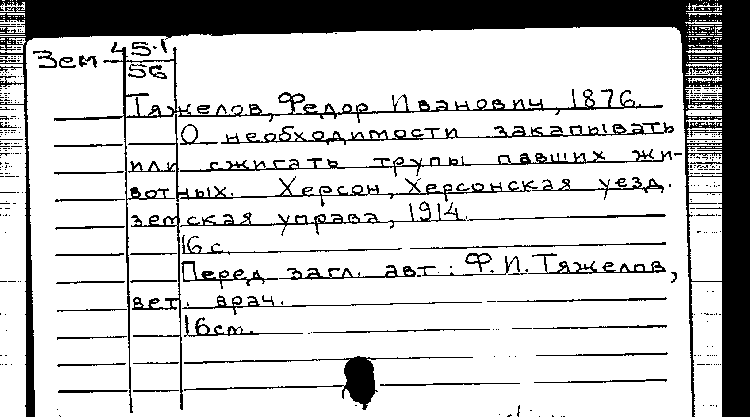 Зем-45.1
56
Тяжелов, Федор Иванович, 1876.
О необходимости закапывать
или сжигать трупы павших жи-
вотных. Херсон, Херсонская уезд.
земская управа, 1914.
16 с.
Перед загл. авт: Ф. И. Тяжелов,
вет. врач.
16 cm.